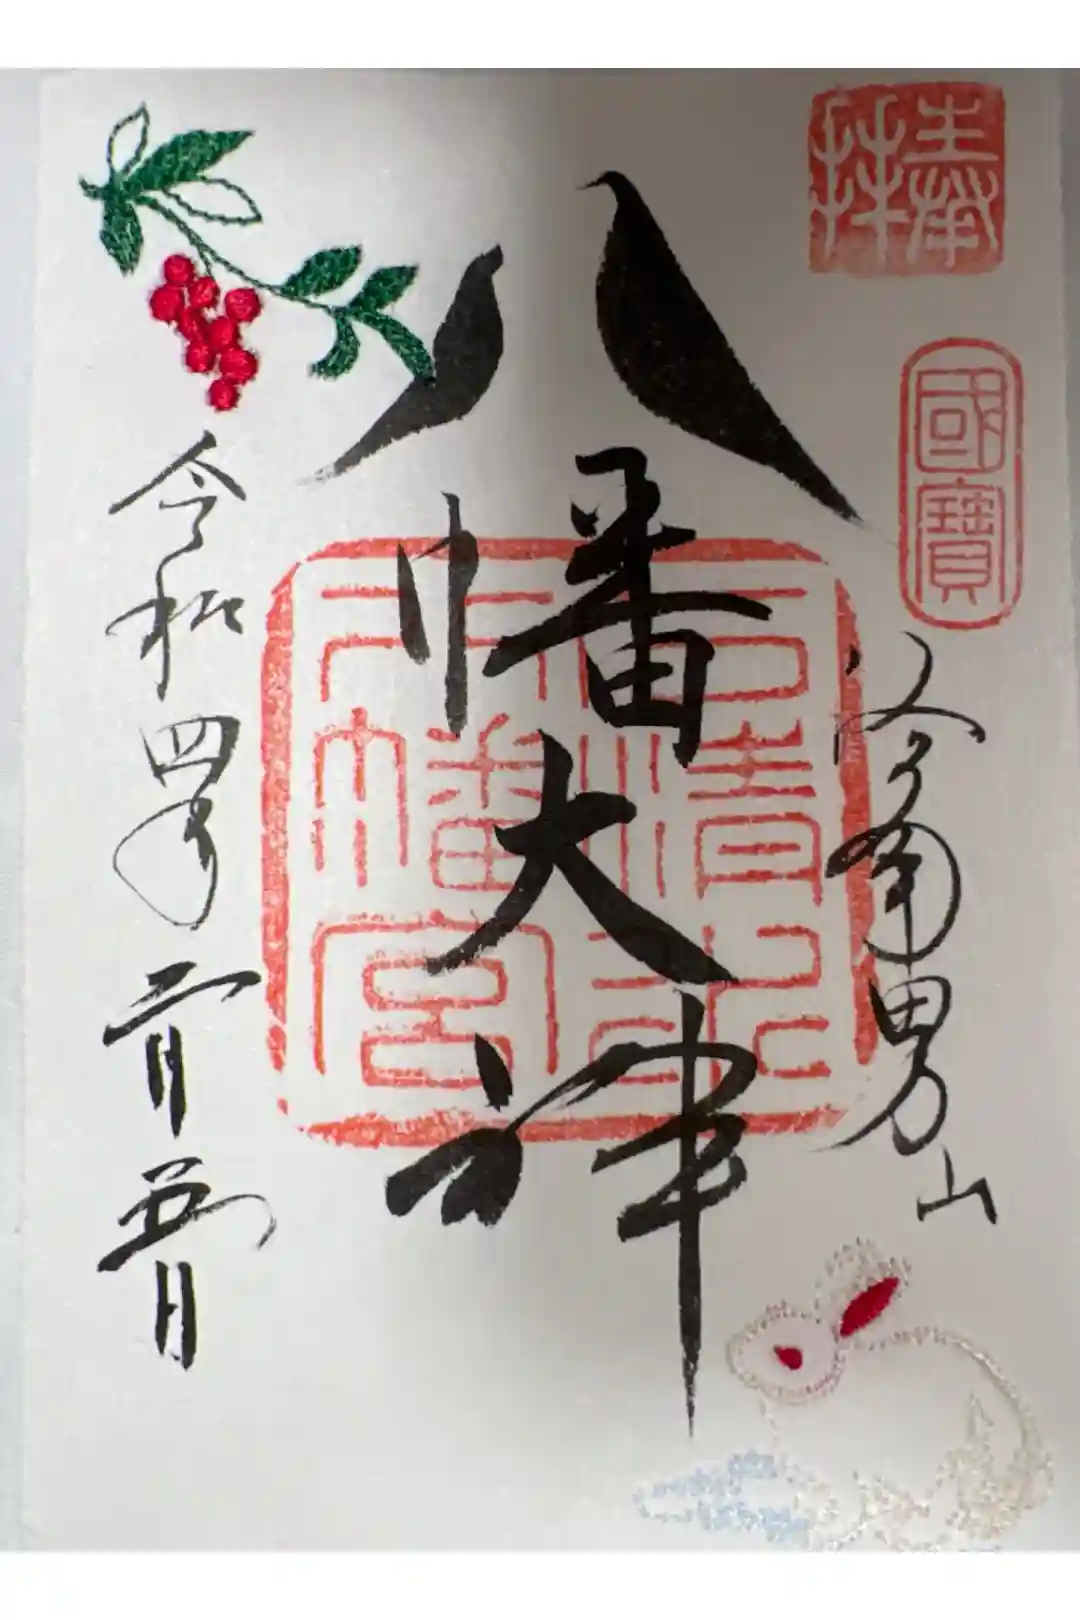 奉拜
國寶
洛南男山
八幡大神
石清水
八幡宮
令和四年二月五日